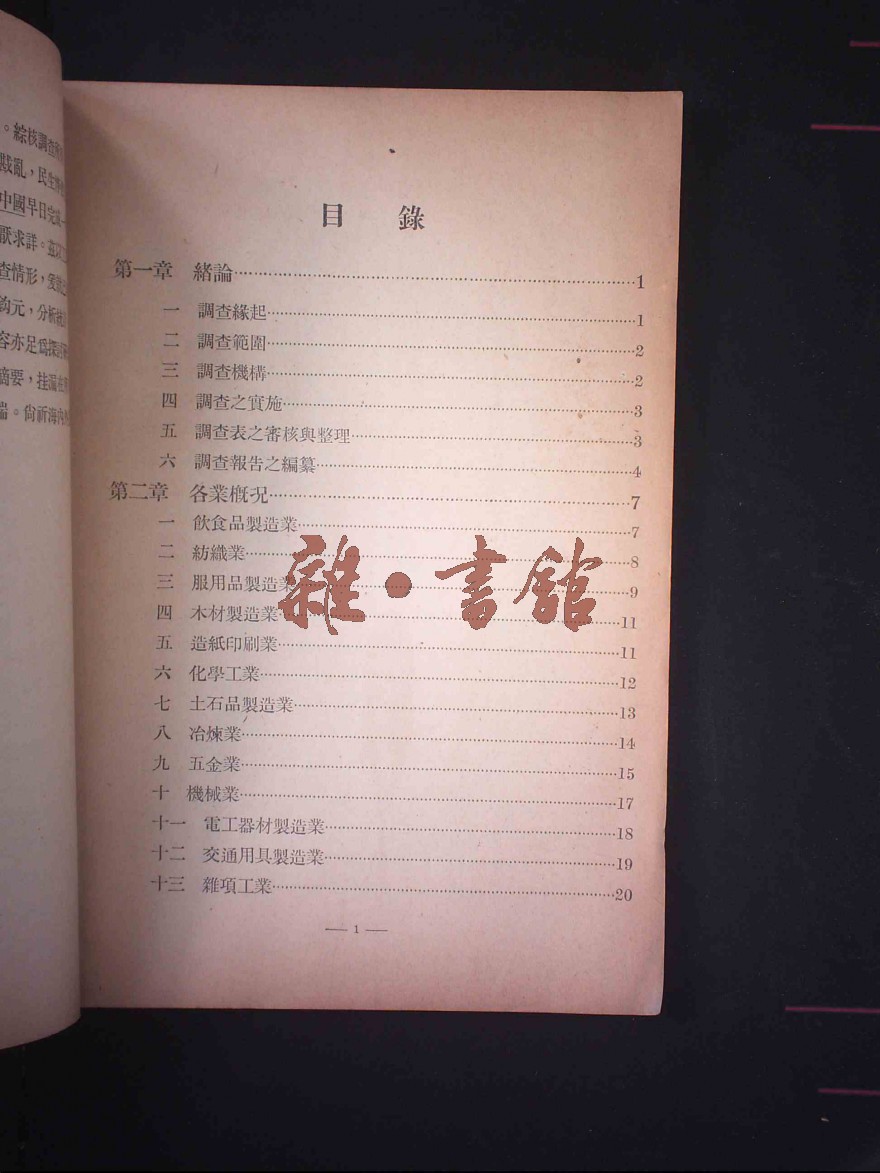 目錄
第一章 緒論……1
一 調查緣起……1
二 調查範圍……2
三 調查機構……2
四 調查之實施……3
五 調查表之審核與整理……3
六 調查報告之編纂……4
第二章 各業概況……7
一 飲食品製造業……7
二 紡織業……8
三 服用品製造業……9
四 木材製造業……11
五 造紙印刷業……11
六 化學工業……12
七 土石品製造業……13
八 冶煉業……14
九 五金業……15
十 機械業……17
十一 電工器材製造業……18
十二 交通用具製造業……19
十三 雜項工業……20
— 1 —
雜·書館
。綜核調查
戡亂,民生
中國早日完成
厭求詳。茲以
查情形,爰
鈎元,分析統
容亦足爲探討
摘要,挂漏在所
耑。尙祈海內外